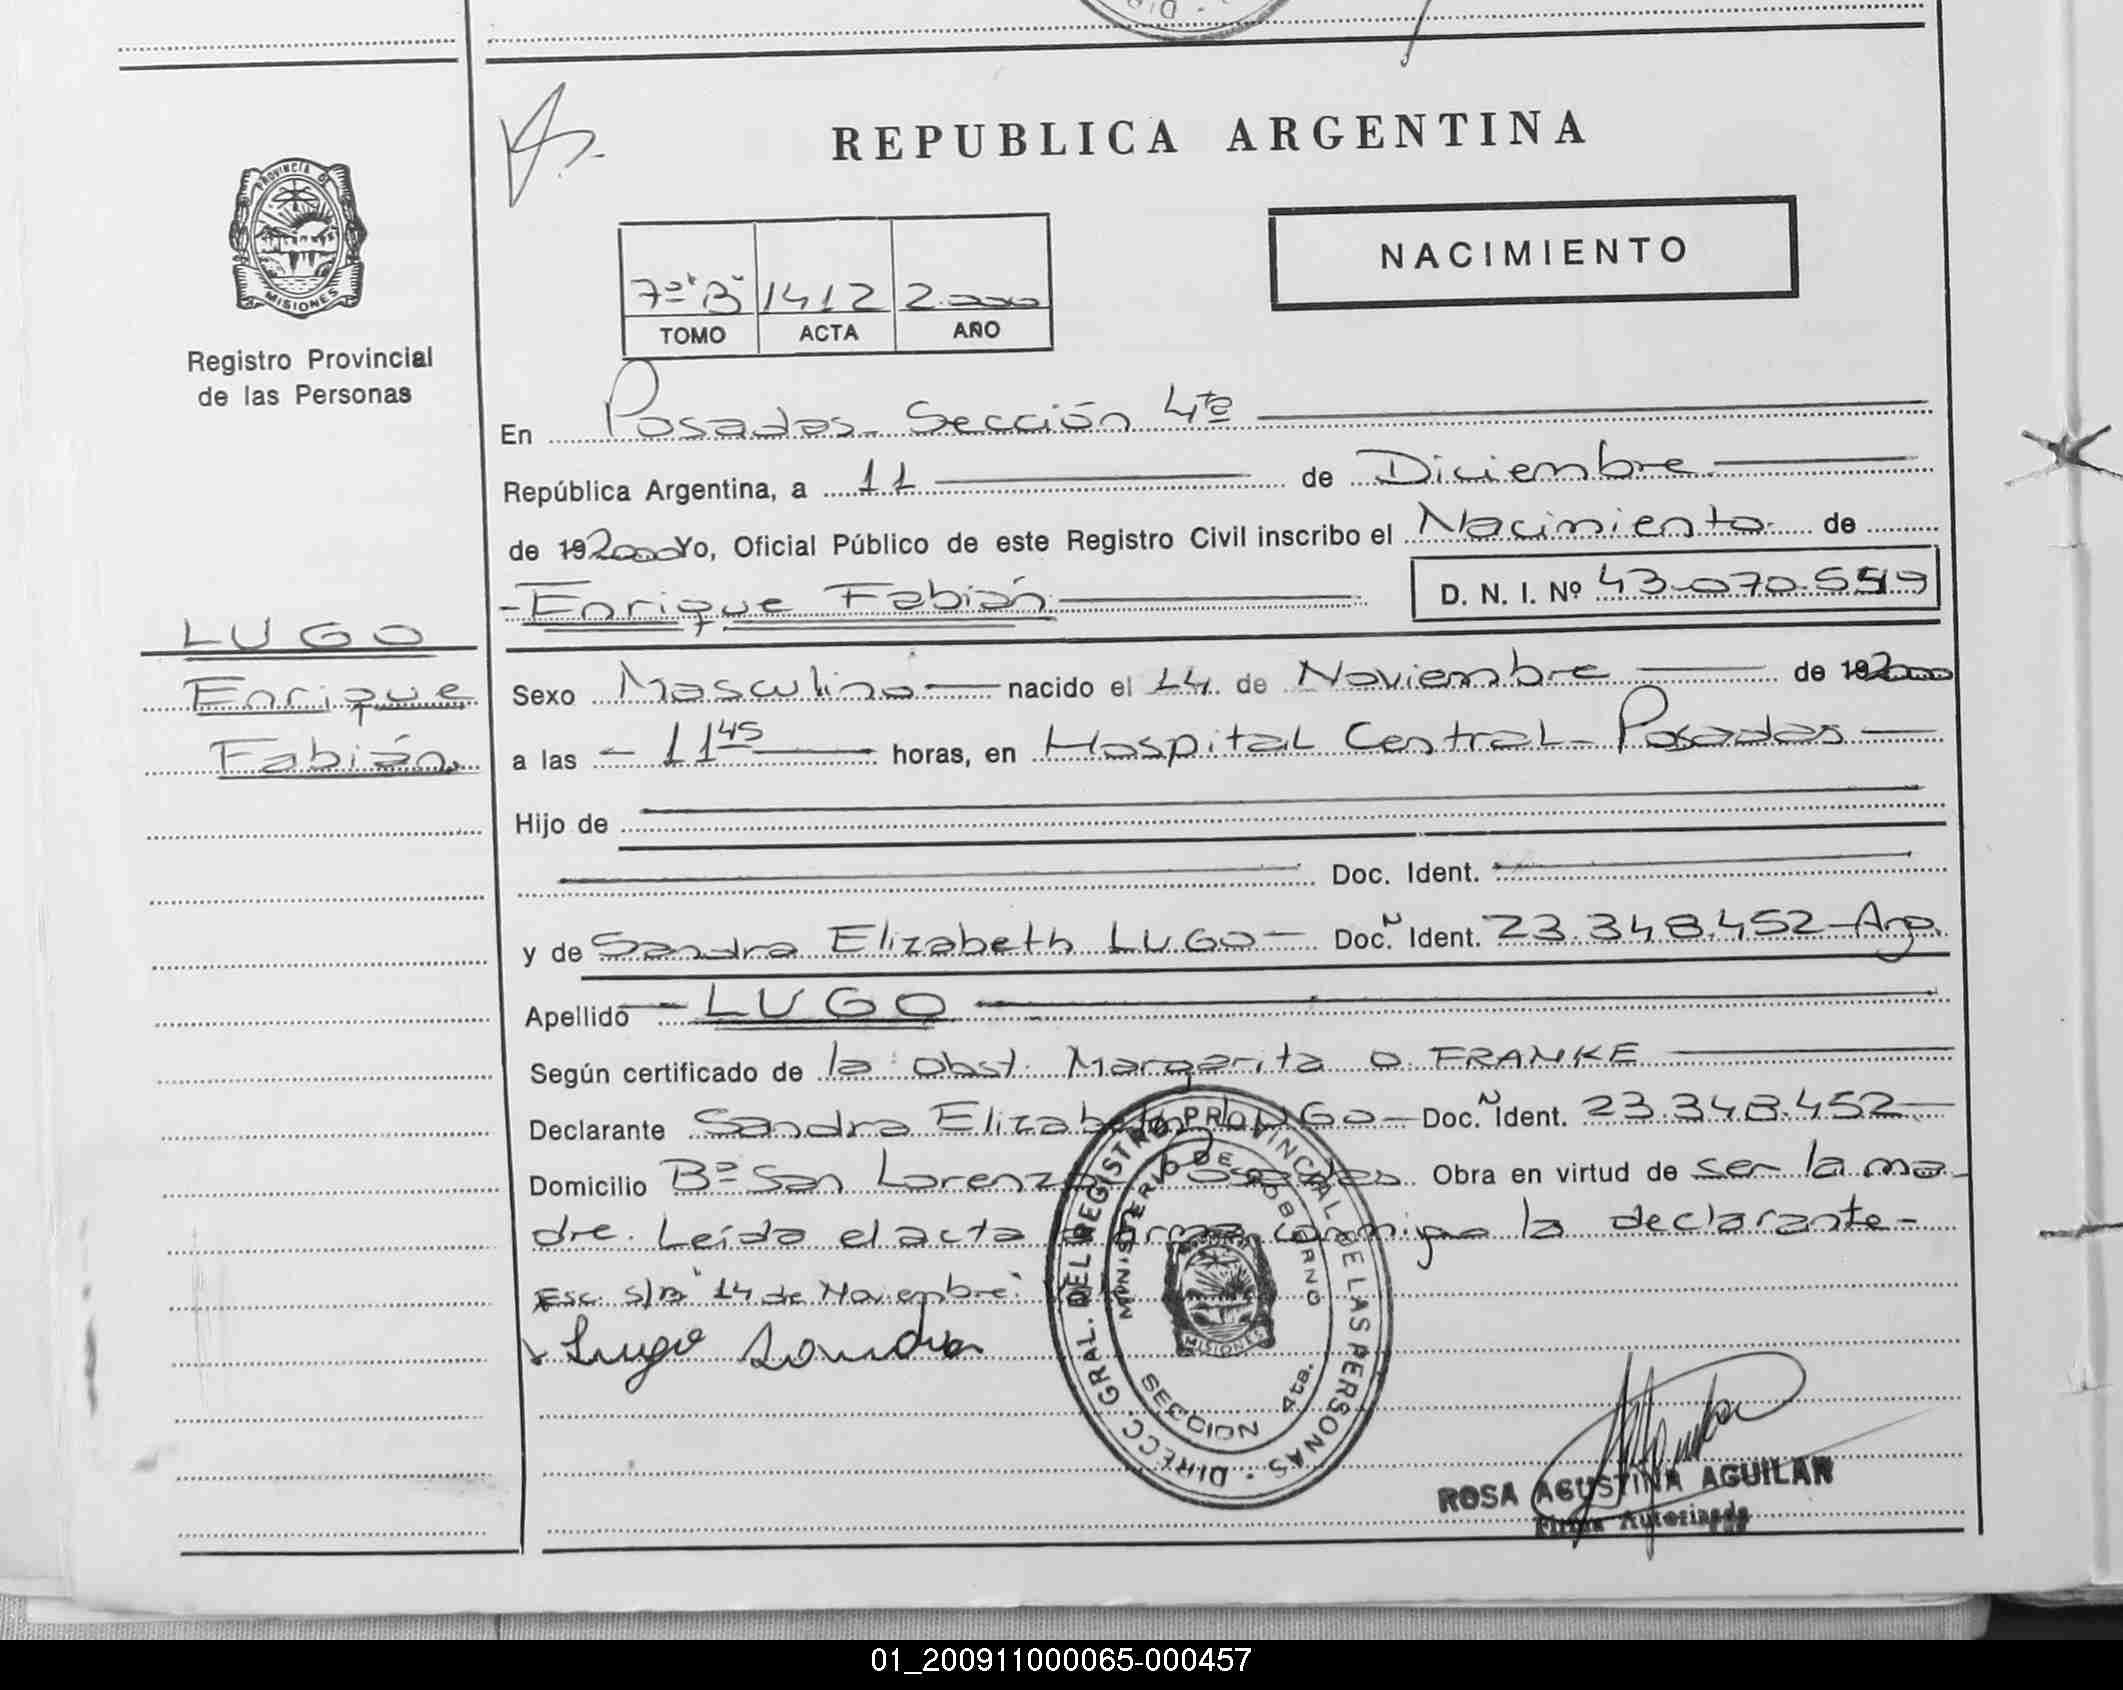 REPUBLICA ARGENTINA
PROVINCIA DE
MISIONES
Registro Provincial
de las Personas
NACIMIENTO
7º "B" 1412 2.000
TOMO ACTA AÑO
En Posadas - Sección 4ta
República Argentina, a 11 de Diciembre
de 192000 Yo, Oficial Público de este Registro Civil inscribo el Nacimiento de
- Enrique Fabián D. N. I. Nº 43.070.559
LUGO
Enrique
Fabián
Sexo Masculino nacido el 14 de Noviembre de 192000
a las - 11 45 horas, en Hospital Central - Posadas
Hijo de
Doc. Ident.
y de Sandra Elizabeth LUGO - Doc. Ident. 23.348.452 - Arg.
Apellido - LUGO
Según certificado de la Obst. Margarita O. FRANKE
Declarante Sandra Elizabeth LUGO - Doc. Ident. 23.348.452 -
Domicilio Bº San Lorenzo Posadas Obra en virtud de ser la ma-
dre. Leída el acta firma conmigo la declarante -
Esc. S/B "14 de Noviembre"
Lugo Sandra
DIRECC. GRAL. DEL REGISTRO PROVINCIAL DE LAS PERSONAS
MINISTERIO DE GOBIERNO
MISIONES
SECCION 4ta.
ROSA AGUSTINA AGUILAR
Firma Autorizada
01_200911000065-000457